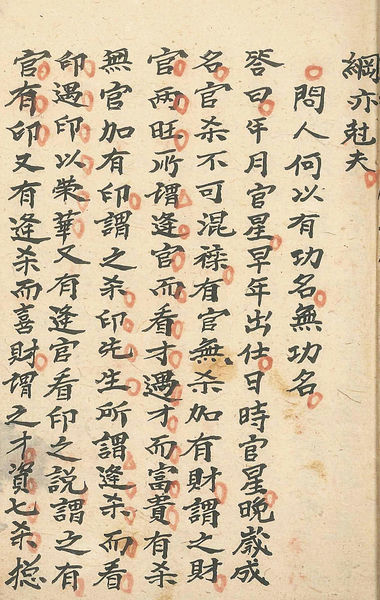 綱亦尅夫
問人何以有功名無功名
答曰年月官星早年出仕日時官星晚歲成
名官杀不可混襍有官無杀加有財謂之財
官两旺所謂逢官而看才遇才而富貴有杀
無官加有印謂之杀印先生所謂逢杀而看
印遇印以榮華又有逢官看印之説謂之有
官有印又有逢杀而喜財謂之才資七杀揔